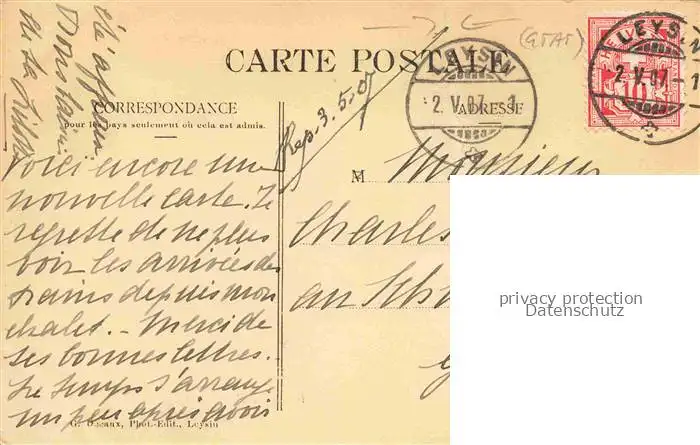 CARTE POSTALE
CORRESPONDANCE
pour les pays seulement où cela est admis.
ADRESSE
LEYSIN
2. V. 07. - 1
LEYSIN
2. V. 07. - 1
10
Rép. 3.5.07
(GTAT)
Voici encore une
nouvelle carte. Je
regrette de ne plus
voir les arrivées des
trains depuis mon
chalet. - Merci de
tes bonnes lettres.
Le temps s'arrange
un peu après avoir
été affreux
de la
M Monsieur
Charles
au
privacy protection
Datenschutz
Phot.-Edit., Leysin